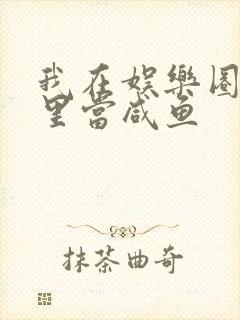 我在娱樂圈
里當咸鱼
抹茶曲奇